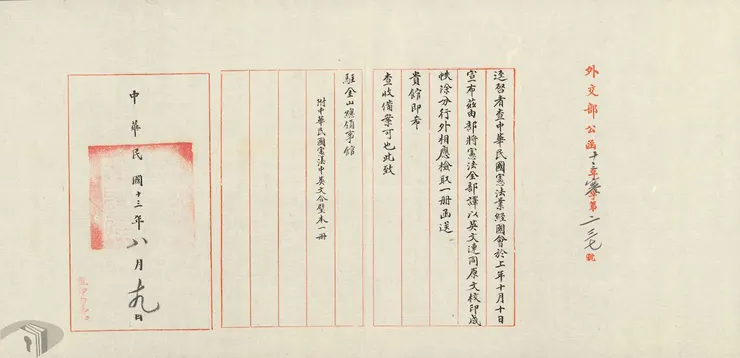 外交部公函十三年字第二三七號
逕啓者查中華民國憲法業經國會於上年十月十日
宣布茲由部將憲法全部譯以英文連同原文校印成
帙除分行外相應檢取一册函送
貴館即希
查收備案可也此致
駐金山總領事館
附中華民國憲法中英文合璧本一册
中華民國十三年八月十九日